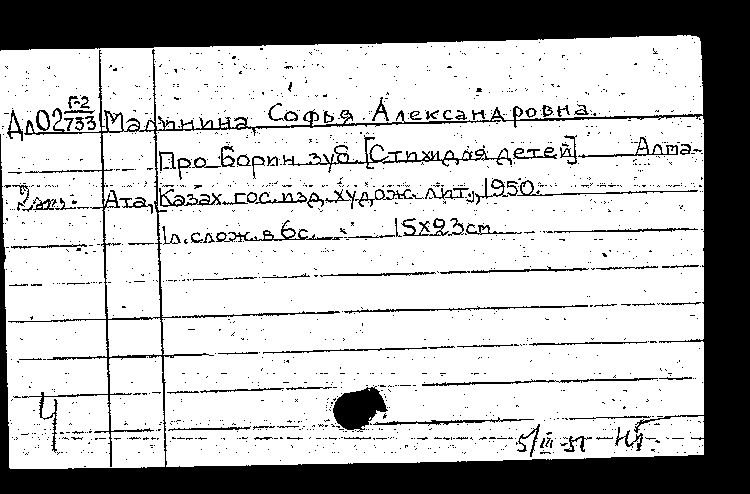 Дл02 Г-2/733 Малинина, Софья Александровна.
Про Борин зуб. [Стихи для детей]. Алма-
2 экз. Ата, Казах. гос. изд. худож. лит., 1950.
1л. слож. в 6с. 15х23см.
Ч
5/III-51